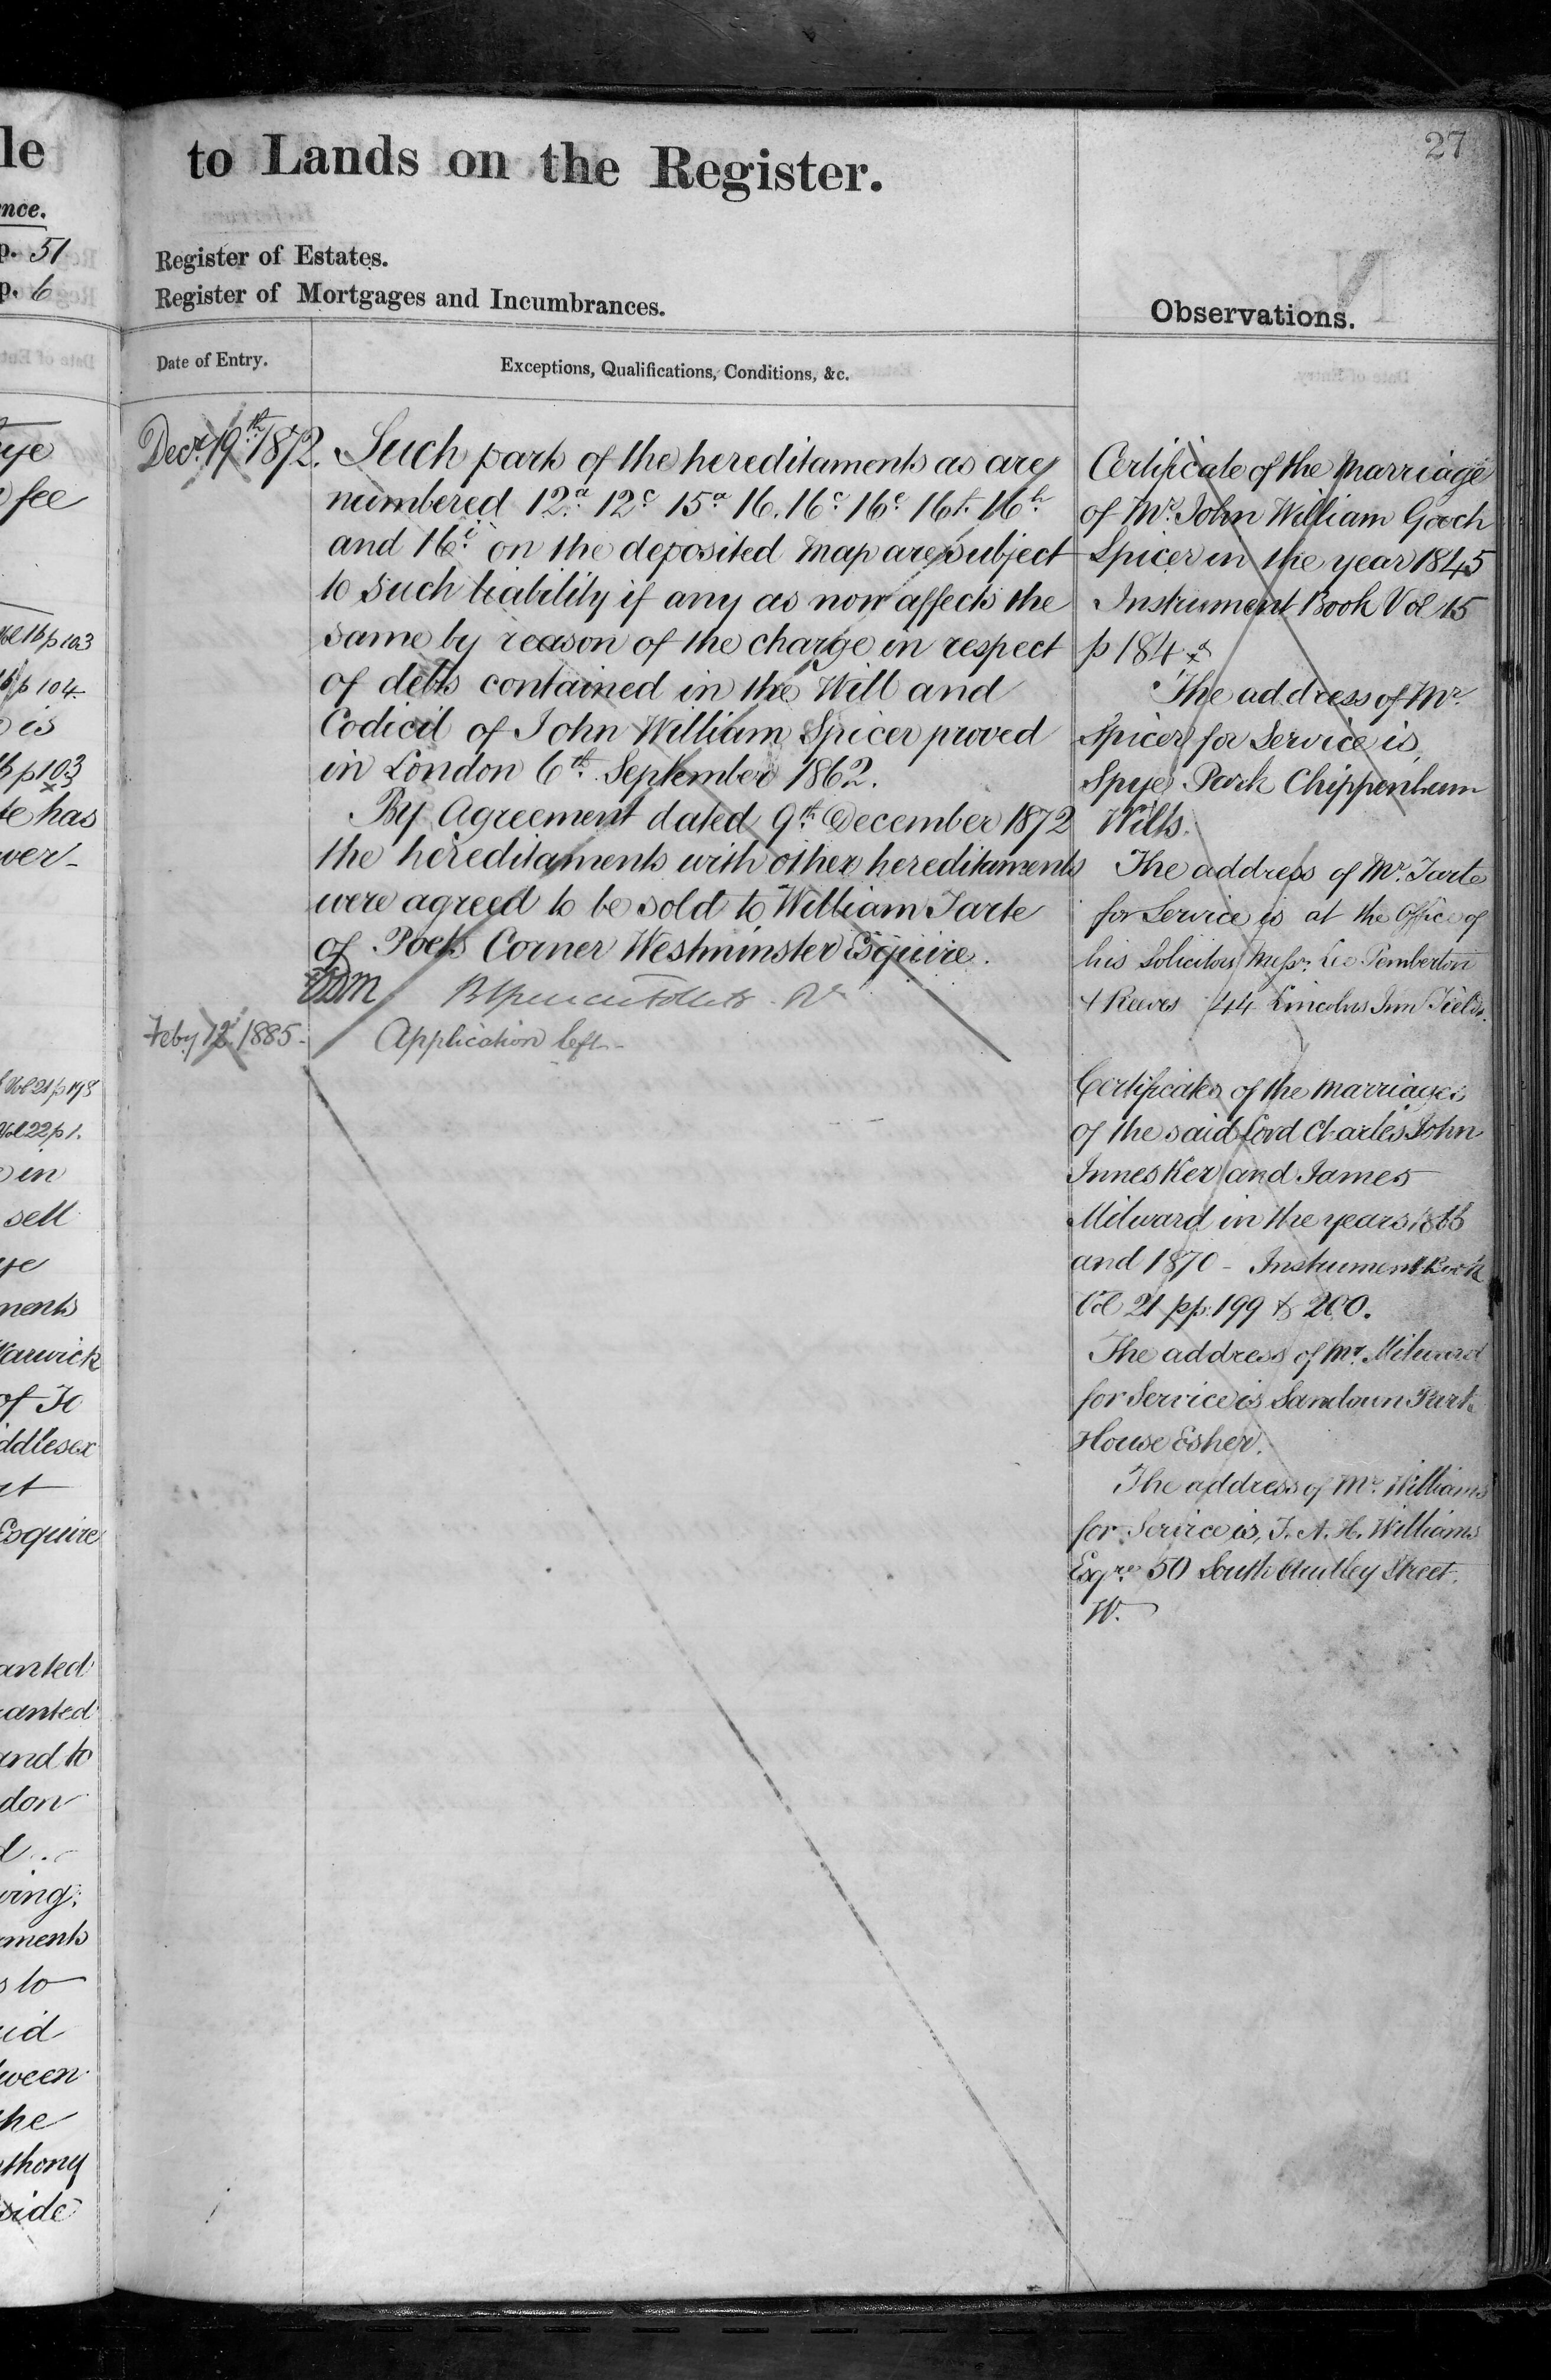 le
nce.
p. 51
p. 6
fee
p 103
p 104
is
p 103
te has
ver
Vol 21 p 198
Vol 22 p 1.
in
sell
ments
Warwick
of
ddlesex
Esquire
anted
anted
and to
don
ving
ments
to
id
ween
he
thony
side
27
to Lands on the Register.
Register of Estates.
Register of Mortgages and Incumbrances.
Date of Entry.
Exceptions, Qualifications, Conditions, &c.
Decr. 19th 1872.
Such parts of the hereditaments as are
numbered 12a 12c 15a 16. 16c 16e 16f 16h
and 16i on the deposited map are subject
to such liability if any as now affects the
same by reason of the charge in respect
of debts contained in the Will and
Codicil of John William Spicer proved
in London 6th September 1862.
By Agreement dated 9th December 1872
the hereditaments with other hereditaments
were agreed to be sold to William Tarte
of Poets Corner Westminster Esquire.
Feby 12 1885
Application left
Observations.
Certificate of the Marriage
of Mr. John William Gooch
Spicer in the year 1845
Instrument Book Vol 15
p 184
The address of Mr.
Spicer for Service is
Spye Park Chippenham
Wilts.
The address of Mr. Tarte
for Service is at the Office of
his Solicitors Messrs. Lee Pemberton
& Reeves 44 Lincolns Inn Fields.
Certificates of the marriages
of the said Lord Charles John
Innes Ker and James
Milward in the years
and 1870 - Instrument Book
Vol 21 pp. 199 & 200.
The address of Mr. Milward
for Service is Sandown Park
House Esher.
The address of Mr. Williams
for Service is, J. A. H. Williams
Esqre. 50 South Audley Street.
W.